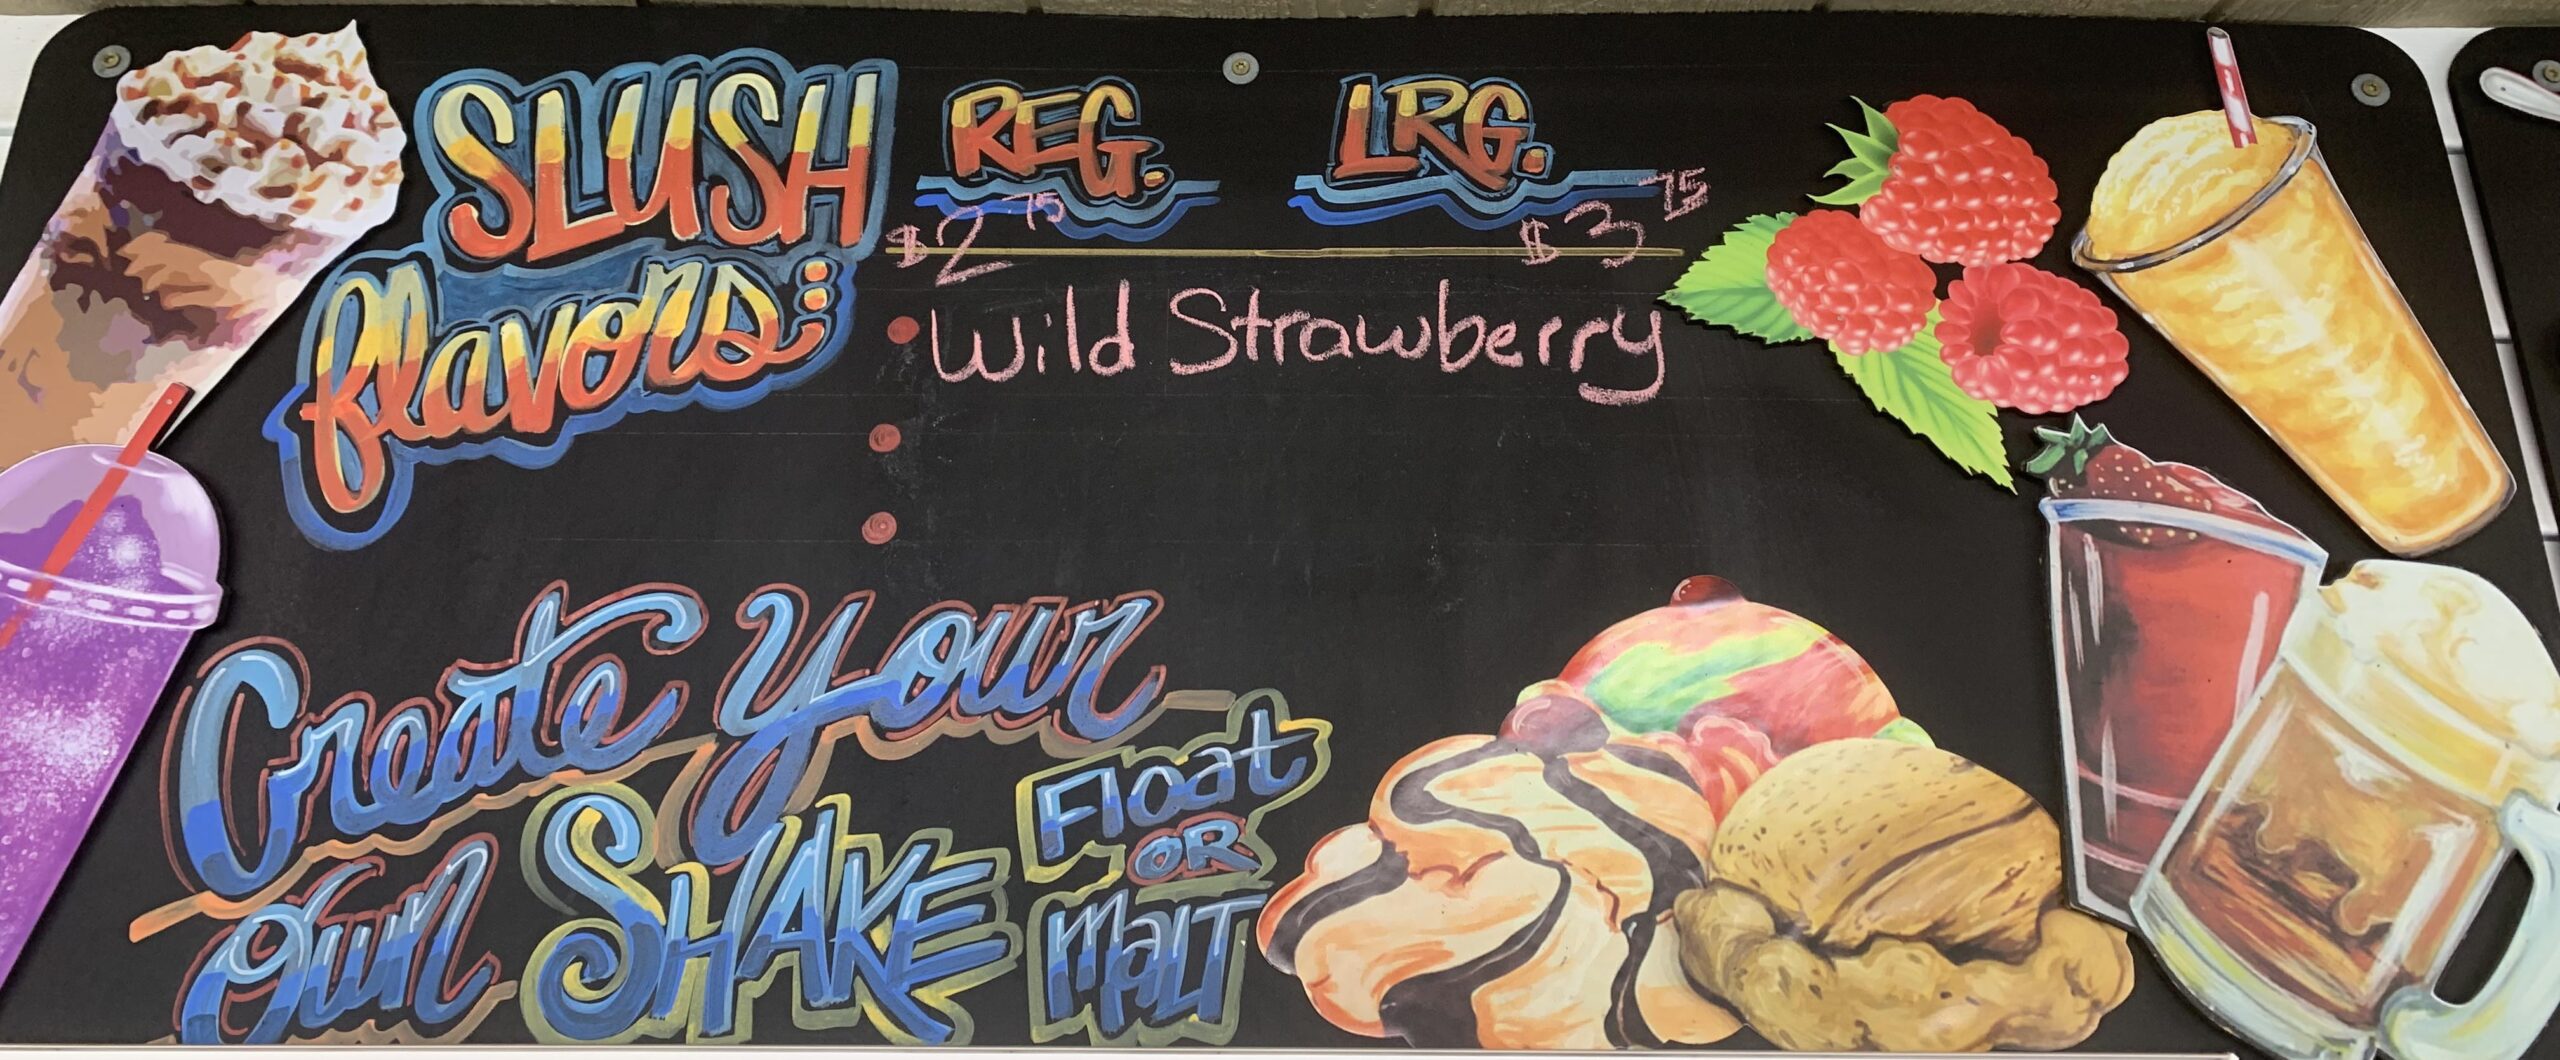 SLUSH REG. LRG.
flavors: $2.75 $3.75
• Wild Strawberry
•
•
Create Your
Own SHAKE Float
OR
MALT